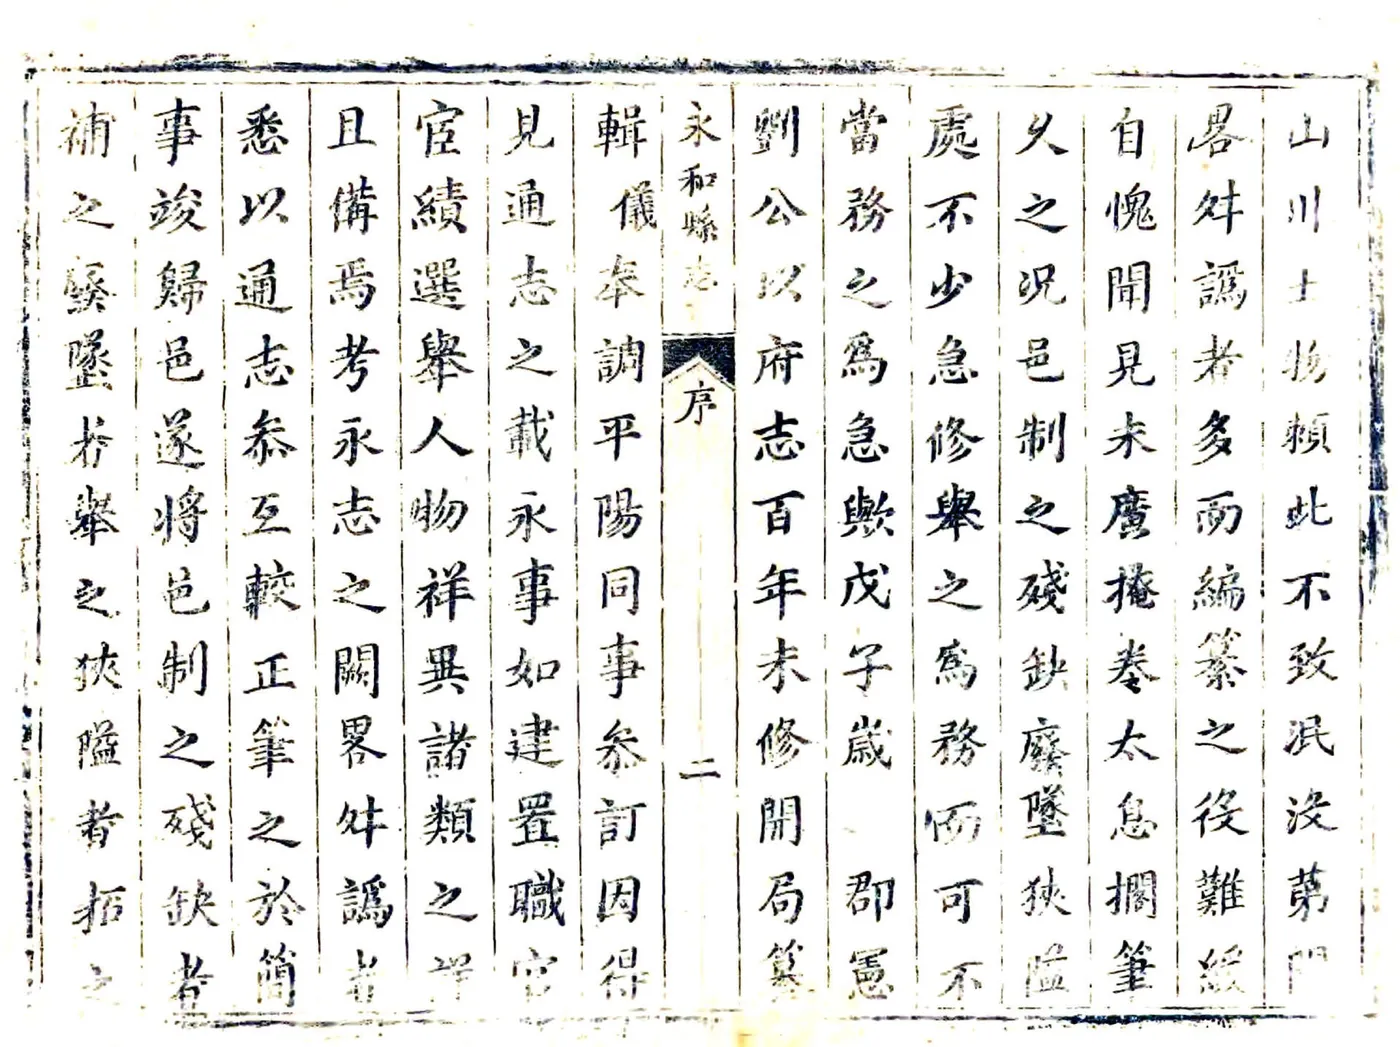 山川土物頼此不致泯没苐門
畧舛譌者多而編纂之役難緩
自愧聞見未廣掩巻太息擱筆
久之况邑制之殘缺廢墜狹隘
處不少急修舉之為務而可不
當務之爲急歟戊子歳　郡憲
劉公以府志百年未修開局纂
永和縣志
序
二
輯　儀奉調平陽同事叅訂因得
見通志之載永事如建置職官
宦績選舉人物祥異諸類之詳
且備焉考永志之闕畧舛譌者
悉以通志叅互較正筆之於簡
事竣歸邑遂將邑制之殘缺者
補之廢墜者舉之狹隘者拓之